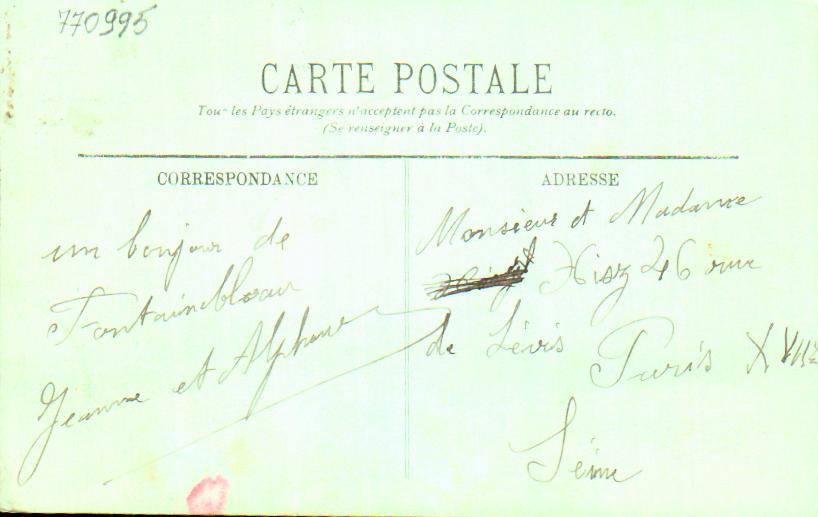 770995
CARTE POSTALE
Tous les Pays étrangers n'acceptent pas la Correspondance au recto.
(Se renseigner à la Poste).
CORRESPONDANCE
un bonjour de
Fontainebleau
Jeanne et Alphonse
ADRESSE
Monsieur et Madame
46 rue
de Lévis Paris XVIIe
Seine